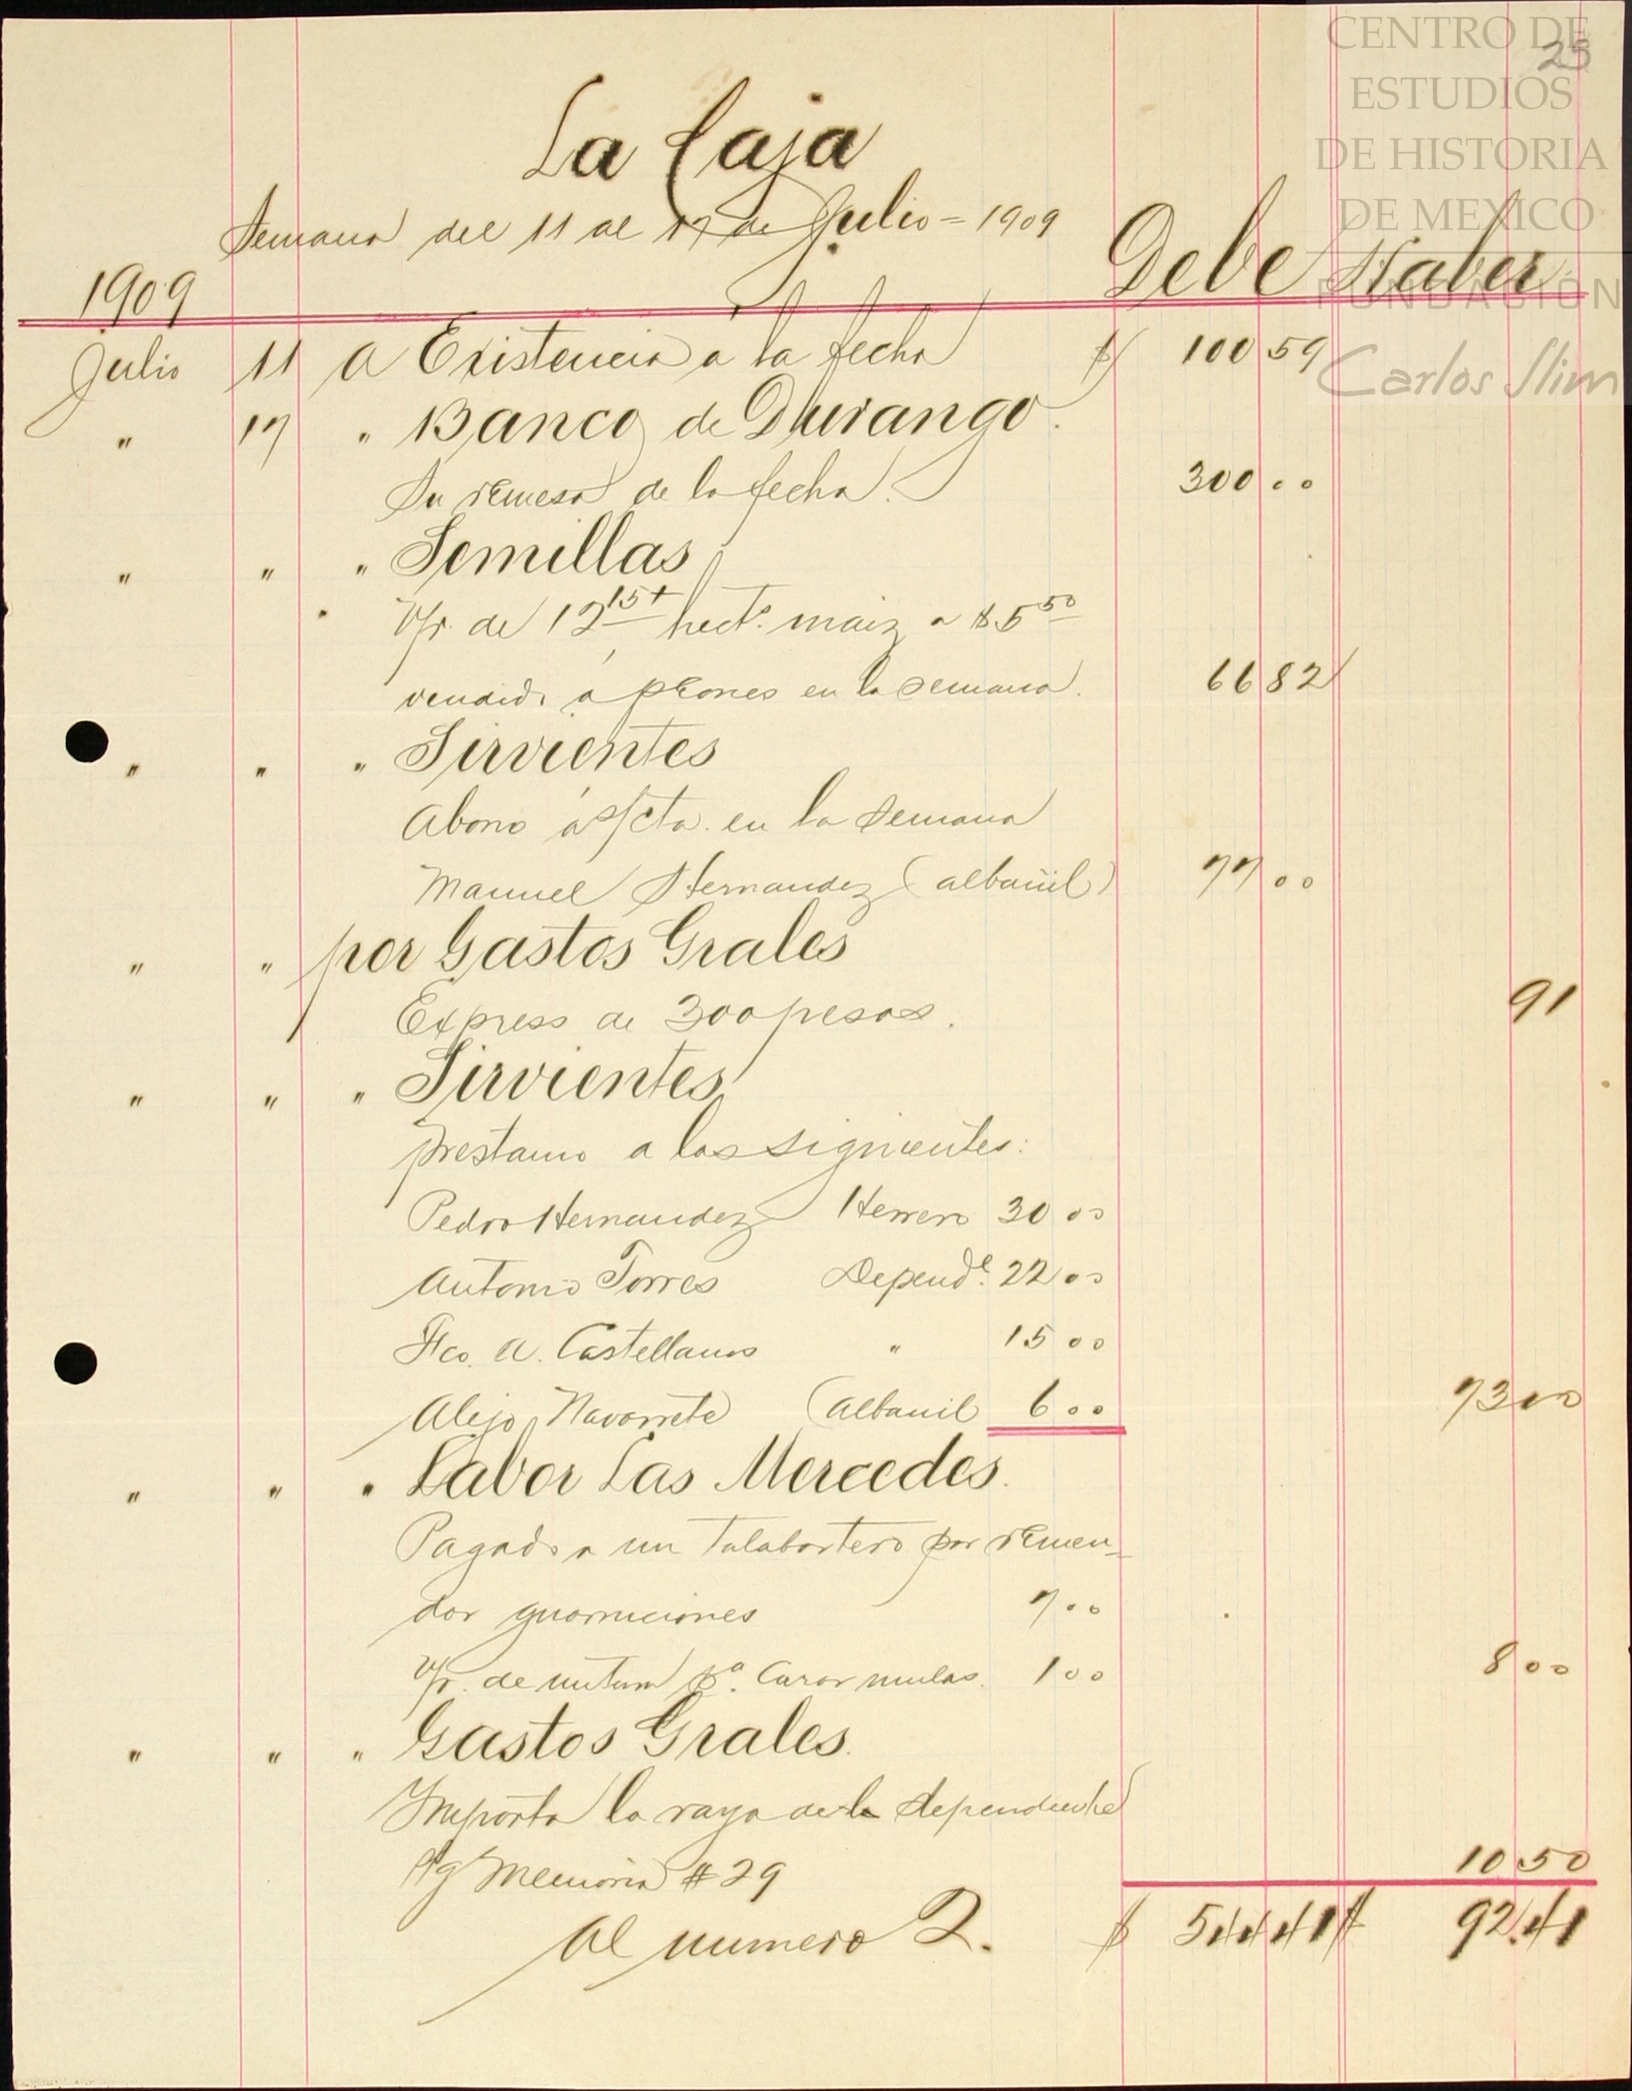 CENTRO DE
ESTUDIOS
DE HISTORIA
DE MEXICO
FUNDACIÓN
Carlos Slim
25
La Caja
Semana del 11 al 17 de Julio = 1909
1909 Debe Haber
Julio 11 a Existencia a la fecha $ 100 59
" 17 " Banco de Durango.
Su remesa de la fecha. 300 00
" " " Semillas
V/r. de 12 15+ hects. maiz a $5 50
vendido á peones en la semana. 66 82
" " " Sirvientes
Abono á s/cta. en la semana
Manuel Hernandez (albañil) 77 00
" " por Gastos Grales
Express de 300 pesos. 91
" " " Sirvientes
prestamo a los siguientes:
Pedro Hernandez Herrero 30 00
Antonio Torres Depende. 22 00
Fco. A. Castellanos " 15 00
Alejo Navarrete (albanil 6 00 73 00
" " " Labor Las Mercedes.
Pagado a un talabartero por remen-
dar guarniciones 7 00
V/r. de untura pa. Curar mulas. 1 00 8 00
" " " Gastos Grales.
Importa la raya de la dependencia
Sg Memoria # 29 10 50
Al numero 2. $ 544 41 $ 92.41